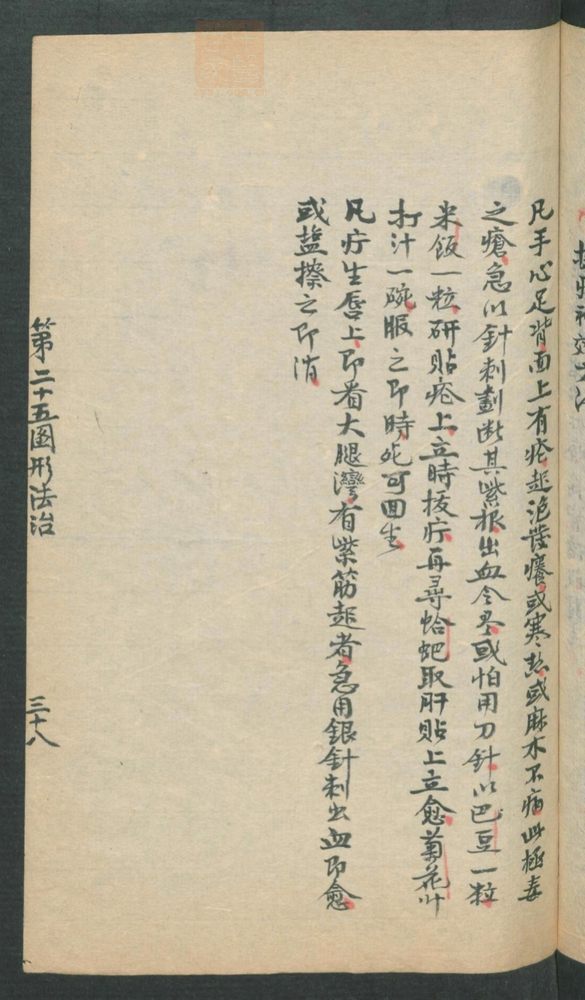 凡手心足背面上有疮起泡発癢或寒热或麻木不痛此極毒
之瘡急以針刺劃断其紫根出血令尽或怕用刀針以巴豆一粒
米飯一粒研貼疮上立時拔疔再尋蛤蚆取肝貼上立愈菊花叶
打汁一碗服之即時死可回生
凡疔生唇上即看大腿灣有紫筋起者急用銀針刺出血即愈
或盐擦之即消
第二十五圖形法治
三十八